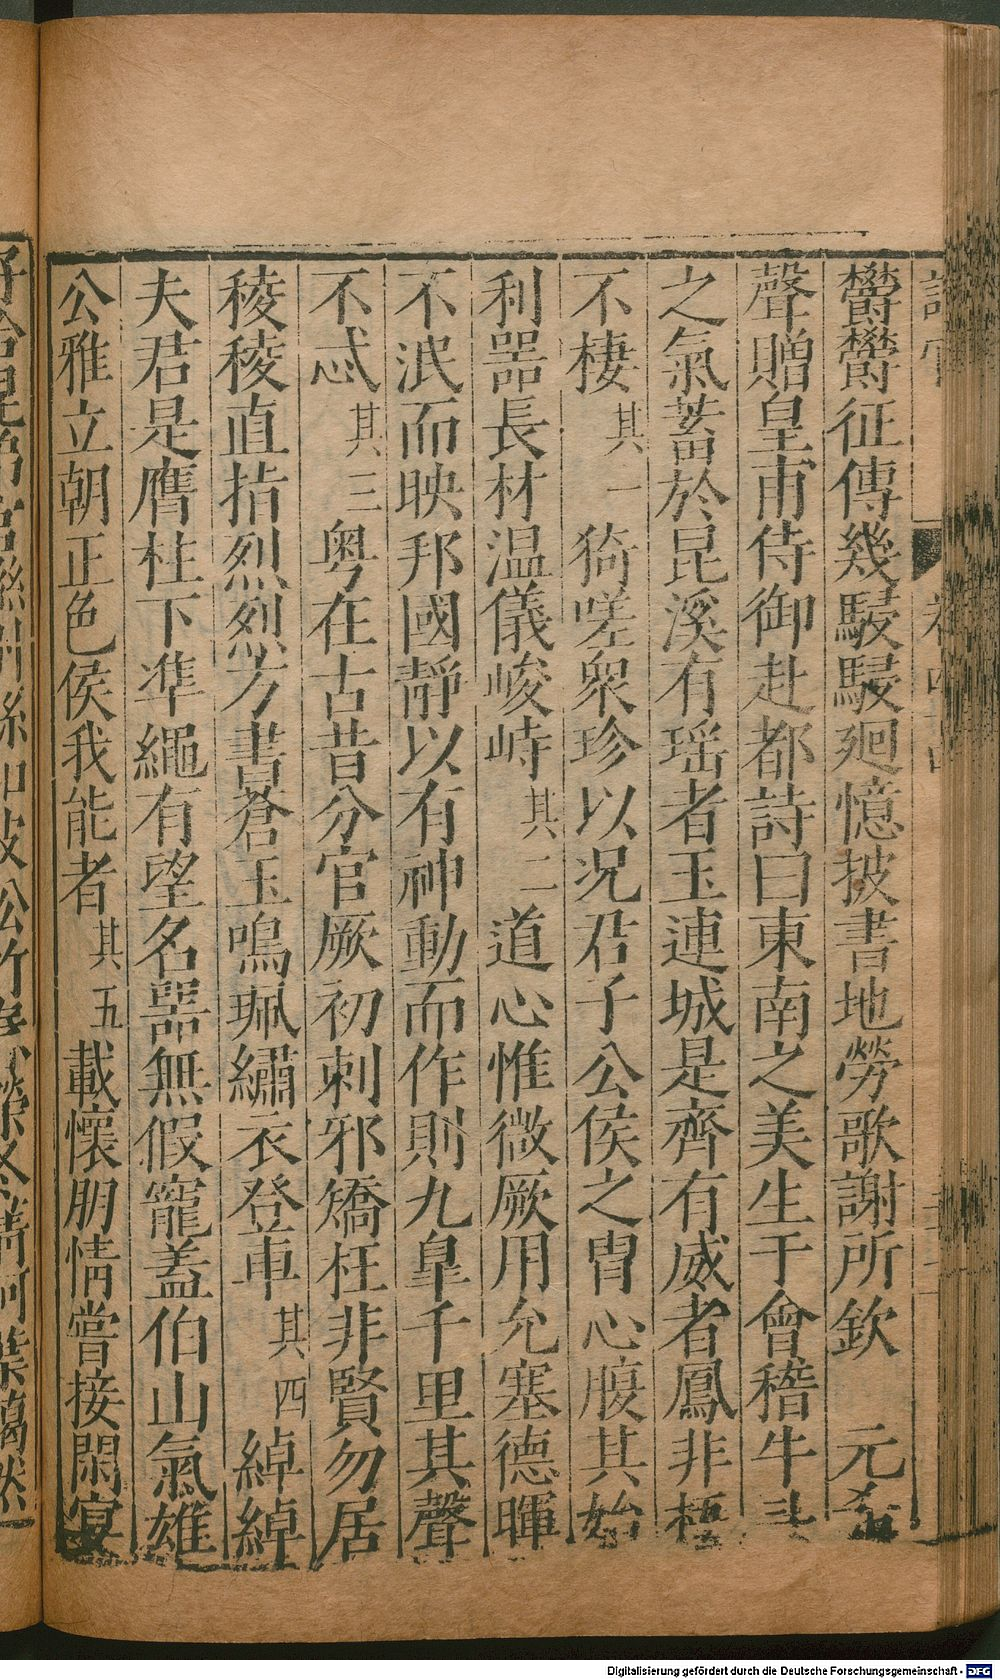 欝欝征傳幾駸駸廻憶披書地勞歌謝所欽　元希
聲贈皇甫侍御赴都詩曰東南之美生于會稽牛斗
之氣蓄於昆溪有瑶者玉連城是齊有威者鳳非梧
不棲其一猗嗟衆珍以况君子公侯之胄心腹其始
利器長材温儀峻峙其二道心惟微厥用允塞德暉
不泯而映邦國靜以有神動而作則九臯千里其聲
不忒其三粤在古昔分官厥初刺邪矯枉非賢勿居
稜稜直指烈烈方書蒼玉鳴珮繡衣登車其四綽綽
夫君是膺柱下凖繩有望名器無假寵蓋伯山氣雄
公雅立朝正色侯我能者其五載懷朋情嘗接閑宴
Digitalisierung gefördert durch die Deutsche Forschungsgemeinschaft - DFG